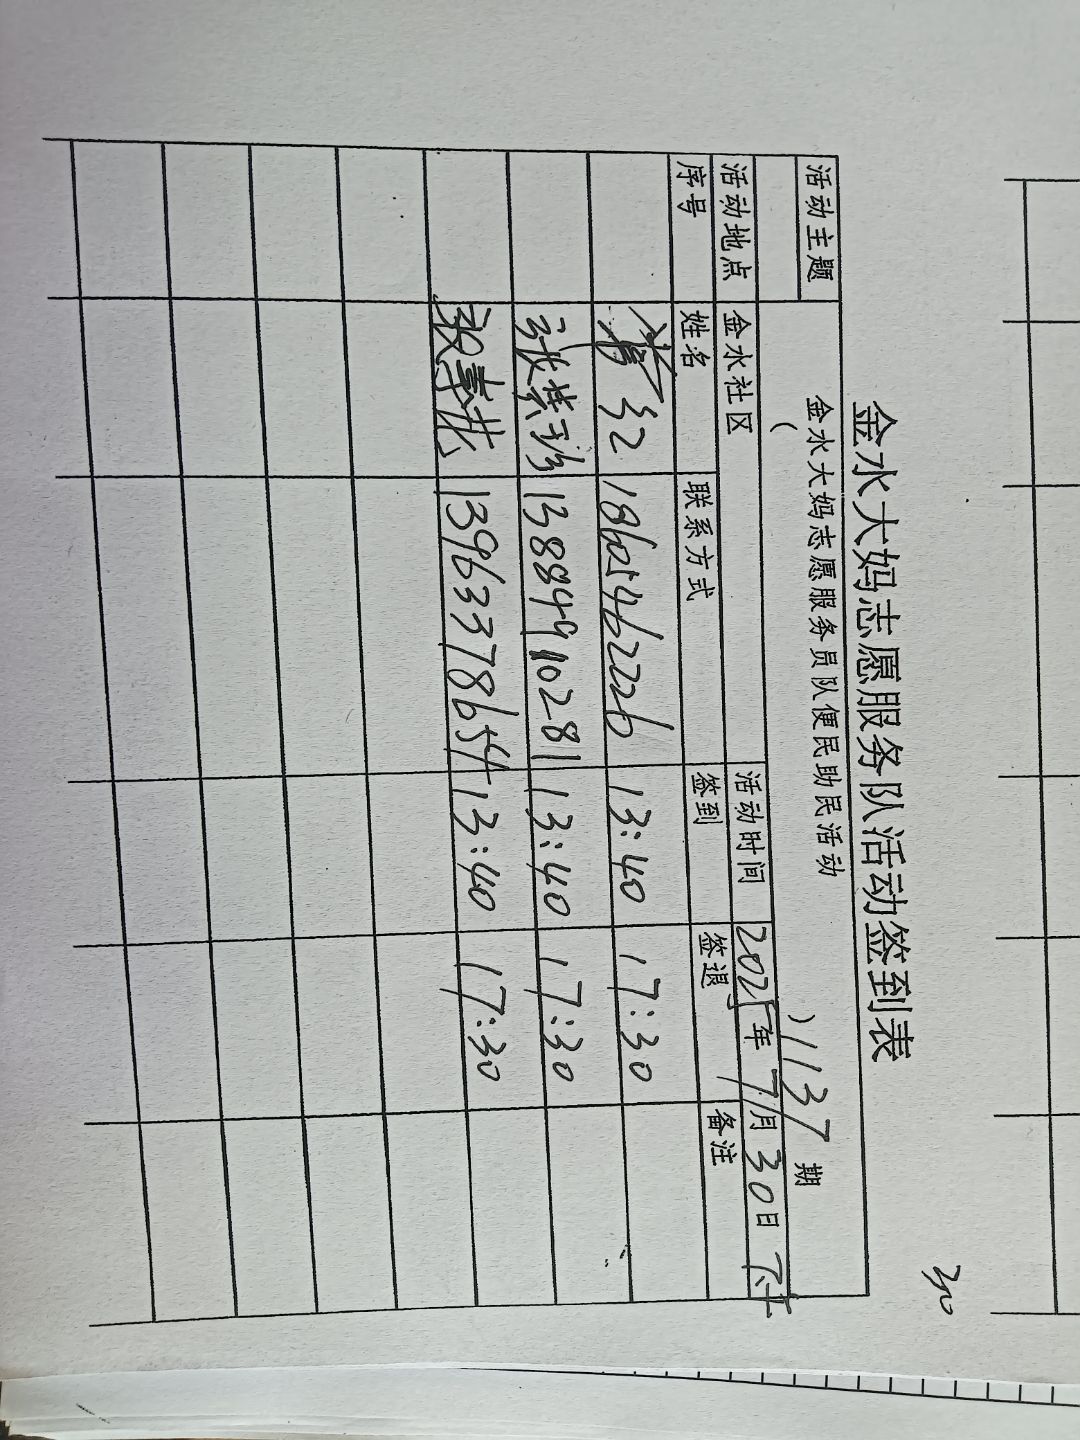 30
金水大妈志愿服务队活动签到表
活动主题 金水大妈志愿服务员队便民助民活动
( ) 1137 期
活动地点 金水社区 活动时间 2025年 7月 30日 下午
序号 姓名 联系方式 签到 签退 备注
红 18605462226 13:40 17:30
张崇珍 13884991028 13:40 17:30
13963378654 13:40 17:30